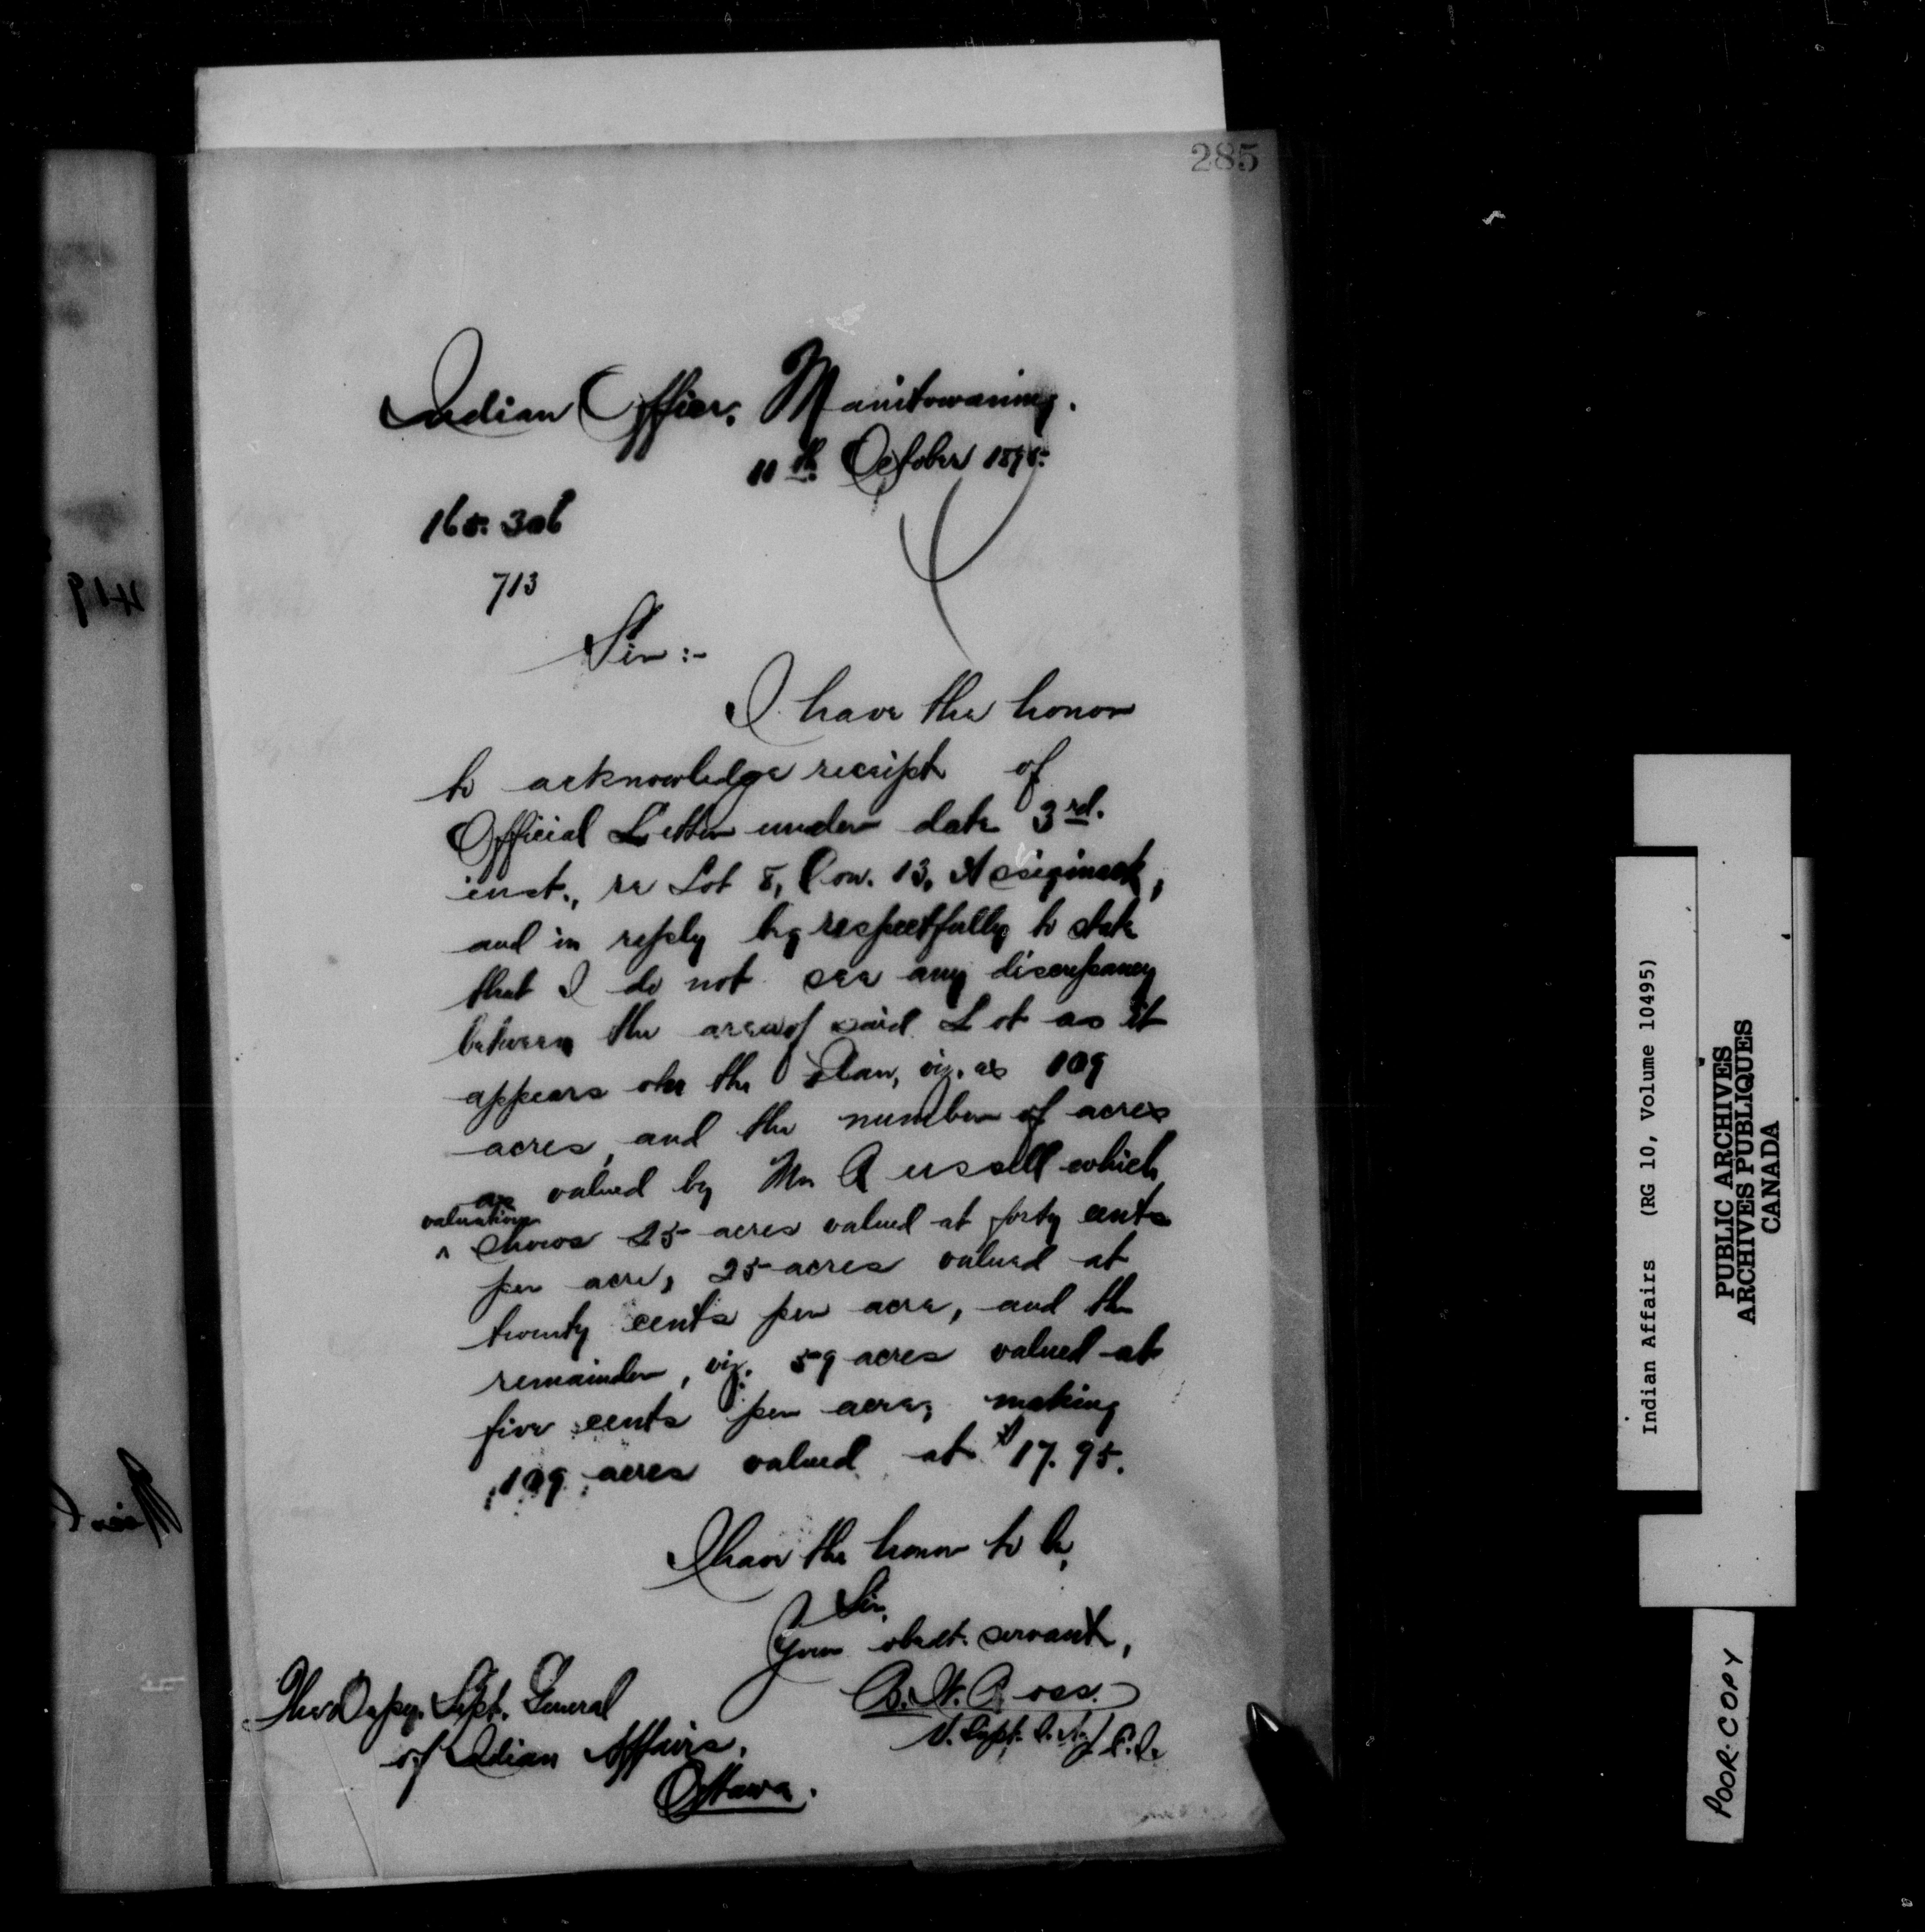 285
Indian Office, Manitowaning.
11th October 189
165.306
713
Sir :-
I have the honor
to acknowledge receipt of
Official Letter under date 3rd.
inst., re Lot 8, Con. 13, Assiginack,
and in reply beg respectfully to state
that I do not see any discrepancy
between the area of said Lot as it
appears on the Plan, viz. as 109
acres, and the number of acres
as valued by Mr Russell which
valuation
^ shows 25 acres valued at forty cents
per acre, 25 acres valued at
twenty cents per acre, and the
remainder, viz. 59 acres valued at
five cents per acre, making
109 acres valued at $17.95.
I have the honor to be,
Sir,
Your obedt. servant,
B. W. Ross.
The Depy. Supt. General
of Indian Affairs,
Ottawa.
419
Indian Affairs (RG 10, Volume 10495)
PUBLIC ARCHIVES
ARCHIVES PUBLIQUES
CANADA
POOR COPY